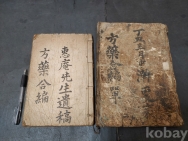 惠庵先生遺稿
方藥合編
方藥合編 單
kobay